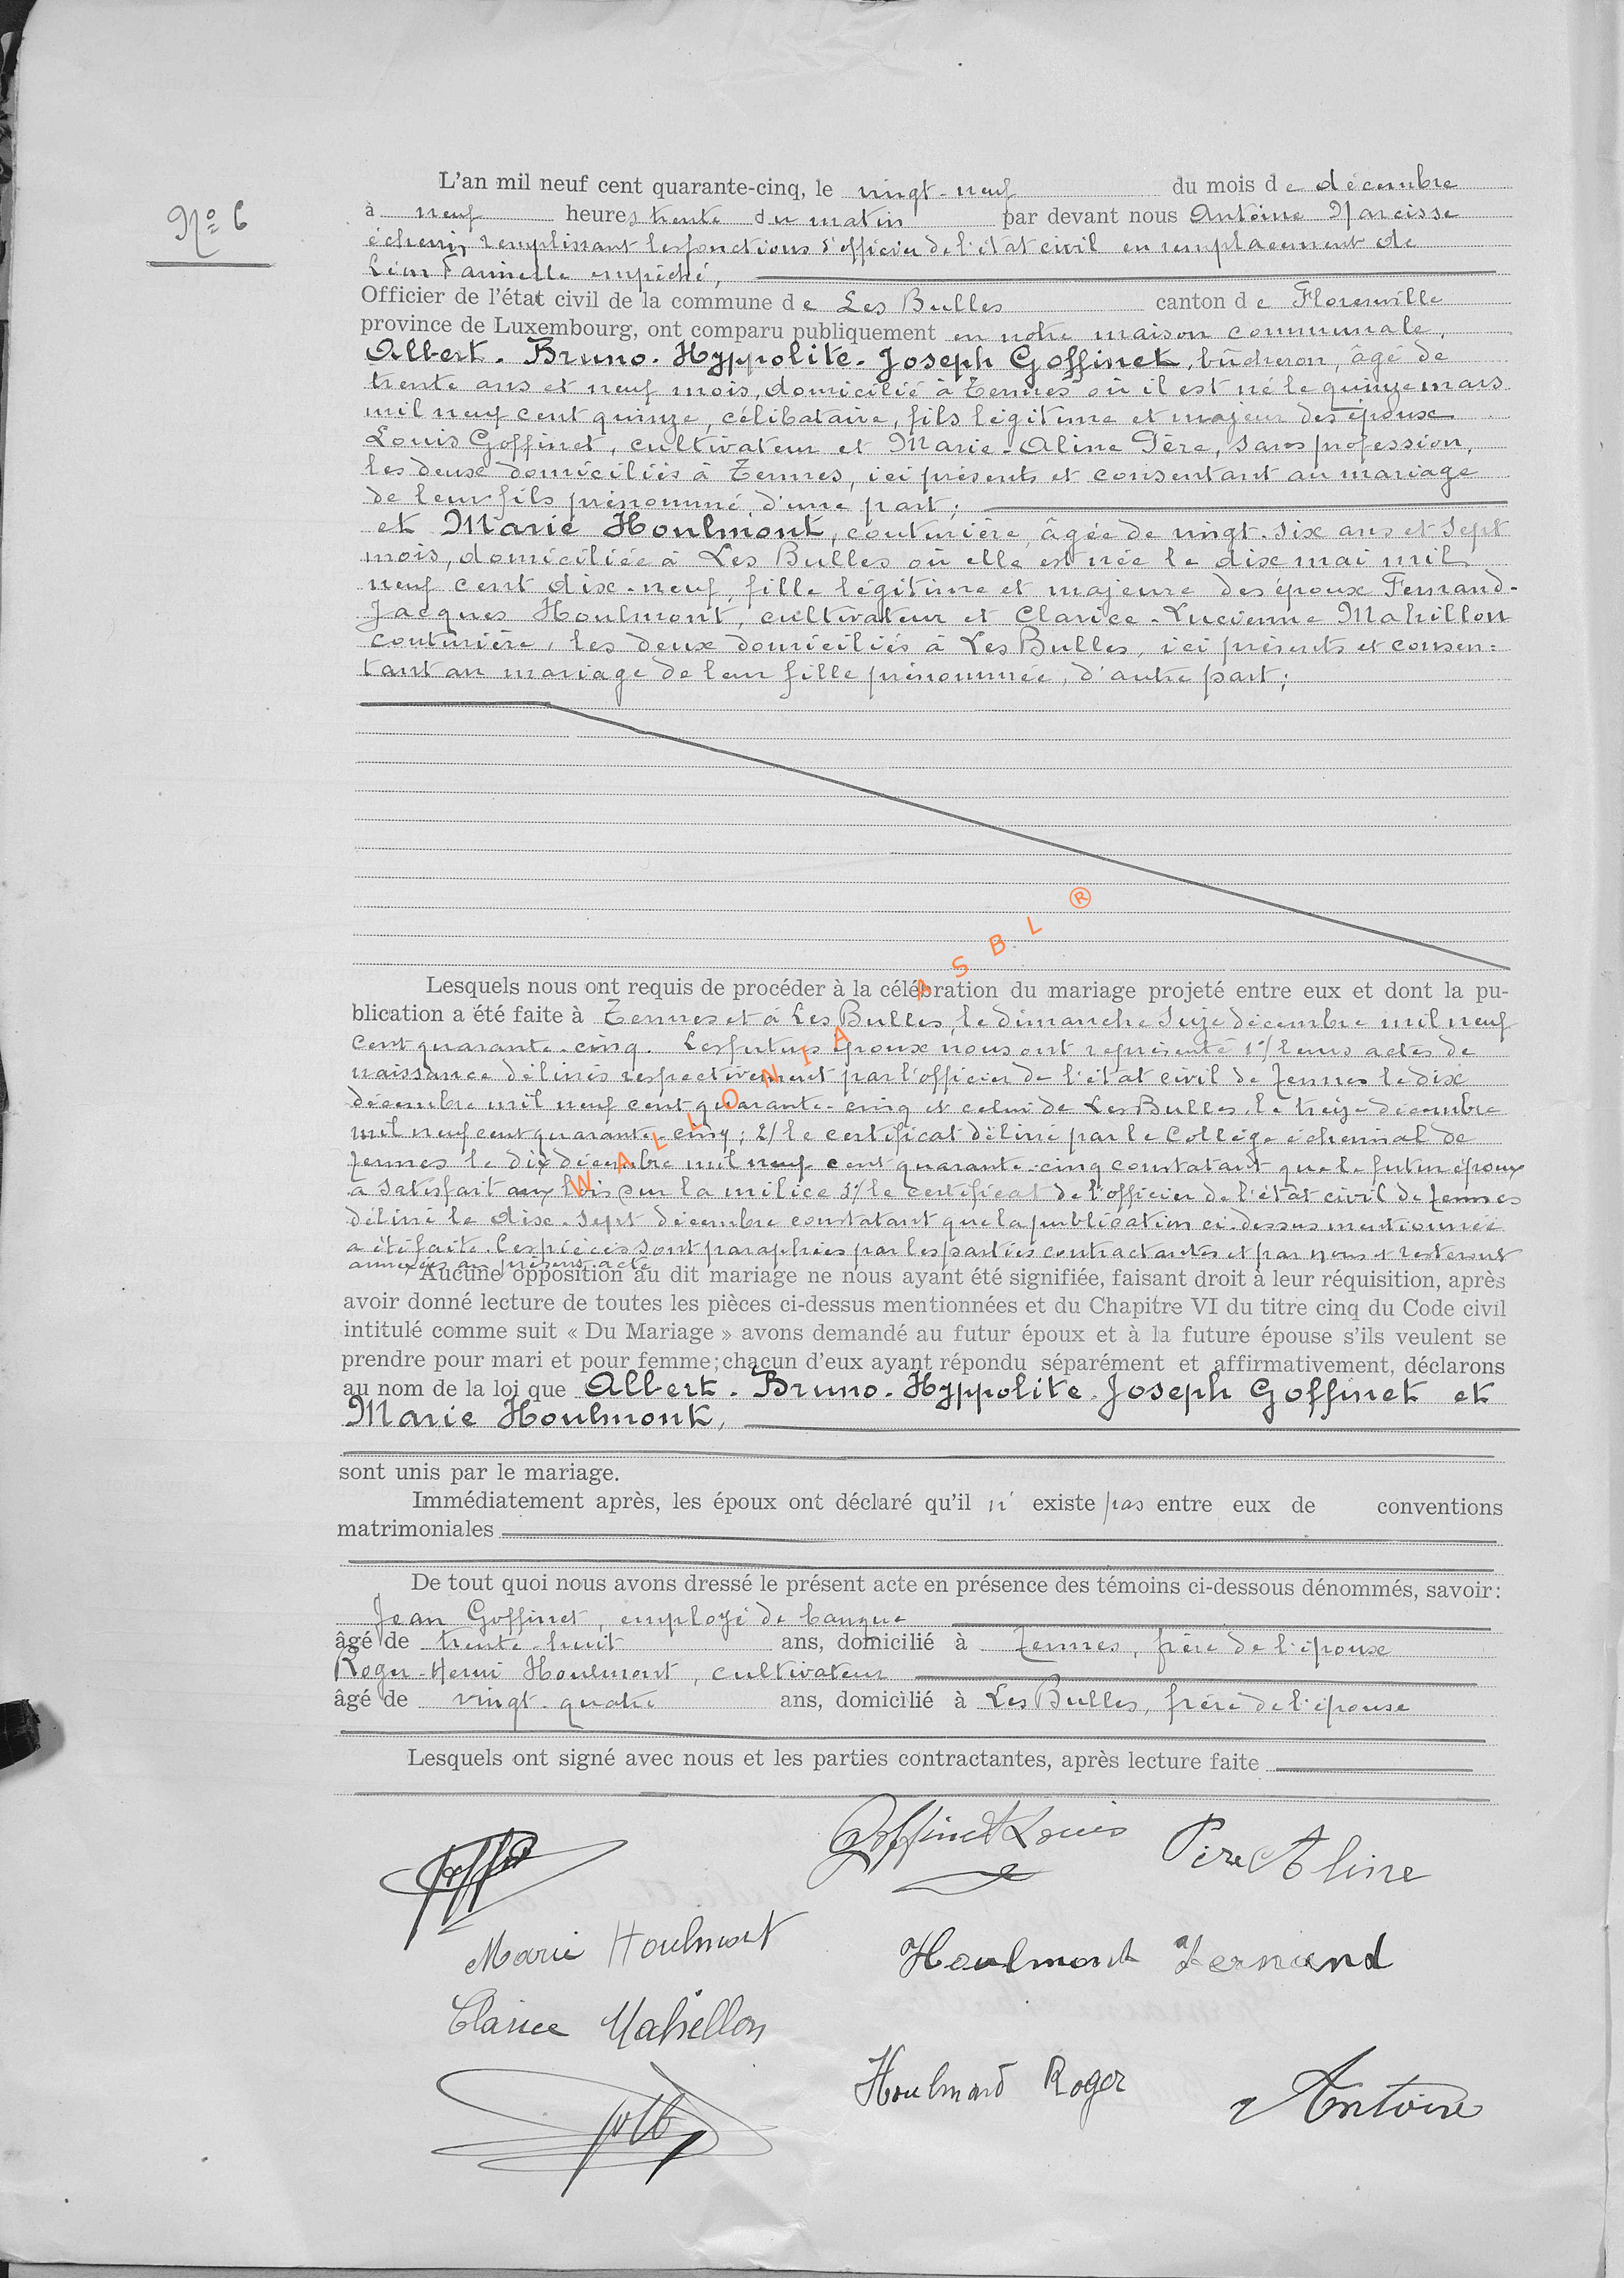 Nº 6
L'an mil neuf cent quarante-cinq, le vingt-neuf du mois de décembre
à neuf heures trente du matin par devant nous Antoine Narcisse
échevin remplissant les fonctions d'officier de l'état civil en remplacement de
Léon empêché,
Officier de l'état civil de la commune de Les Bulles canton de Florenville
province de Luxembourg, ont comparu publiquement en notre maison communale,
Albert-Bruno-Hyppolite-Joseph Goffinet, bûcheron, âgé de
trente ans et neuf mois, domicilié à Termes où il est né le quinze mars
mil neuf cent quinze, célibataire, fils légitime et majeur des époux
Louis Goffinet, cultivateur et Marie-Aline Père, sans profession,
les deux domiciliés à Termes, ici présents et consentant au mariage
de leur fils prénommé, d'une part;
et Marie Houlmont, couturière, âgée de vingt-six ans et sept
mois, domiciliée à Les Bulles où elle est née le dix mai mil
neuf cent dix-neuf, fille légitime et majeure des époux Fernand-
Jacques Houlmont, cultivateur et Clarice-Lucienne Mahillon
couturière, les deux domiciliés à Les Bulles, ici présents et consen=
tant au mariage de leur fille prénommée, d'autre part;
WALLONIA ASBL ®
Lesquels nous ont requis de procéder à la célébration du mariage projeté entre eux et dont la pu-
blication a été faite à Termes et à Les Bulles, le dimanche seize décembre mil neuf
cent quarante-cinq. Les futurs époux nous ont représenté 1°/ leurs actes de
naissance délivrés respectivement par l'officier de l'état civil de Termes le dix
décembre mil neuf cent quarante-cinq et celui de Les Bulles, le treize décembre
mil neuf cent quarante-cinq; 2/ le certificat délivré par le Collège échevinal de
Termes le dix décembre mil neuf cent quarante-cinq constatant que le futur époux
a satisfait aux lois sur la milice 3°/ le certificat de l'officier de l'état civil de Termes
délivré le dix-sept décembre constatant que la publication ci-dessus mentionnée
a été faite. Ces pièces sont paraphées par les parties contractantes et par nous et resteront
annexées au présent acte
Aucune opposition au dit mariage ne nous ayant été signifiée, faisant droit à leur réquisition, après
avoir donné lecture de toutes les pièces ci-dessus mentionnées et du Chapitre VI du titre cinq du Code civil
intitulé comme suit « Du Mariage » avons demandé au futur époux et à la future épouse s'ils veulent se
prendre pour mari et pour femme; chacun d'eux ayant répondu séparément et affirmativement, déclarons
au nom de la loi que Albert-Bruno-Hyppolite-Joseph Goffinet et
Marie Houlmont,
sont unis par le mariage.
Immédiatement après, les époux ont déclaré qu'il n' existe pas entre eux de conventions
matrimoniales
De tout quoi nous avons dressé le présent acte en présence des témoins ci-dessous dénommés, savoir:
Jean Goffinet, employé de banque
âgé de trente-huit ans, domicilié à Termes, frère de l'époux
Roger-Henri Houlmont, cultivateur
âgé de vingt-quatre ans, domicilié à Les Bulles, frère de l'épouse
Lesquels ont signé avec nous et les parties contractantes, après lecture faite
Goffinet Louis Père Aline
Marie Houlmont Houlmont Fernand
Clarice Mahillon
Houlmont Roger Antoine